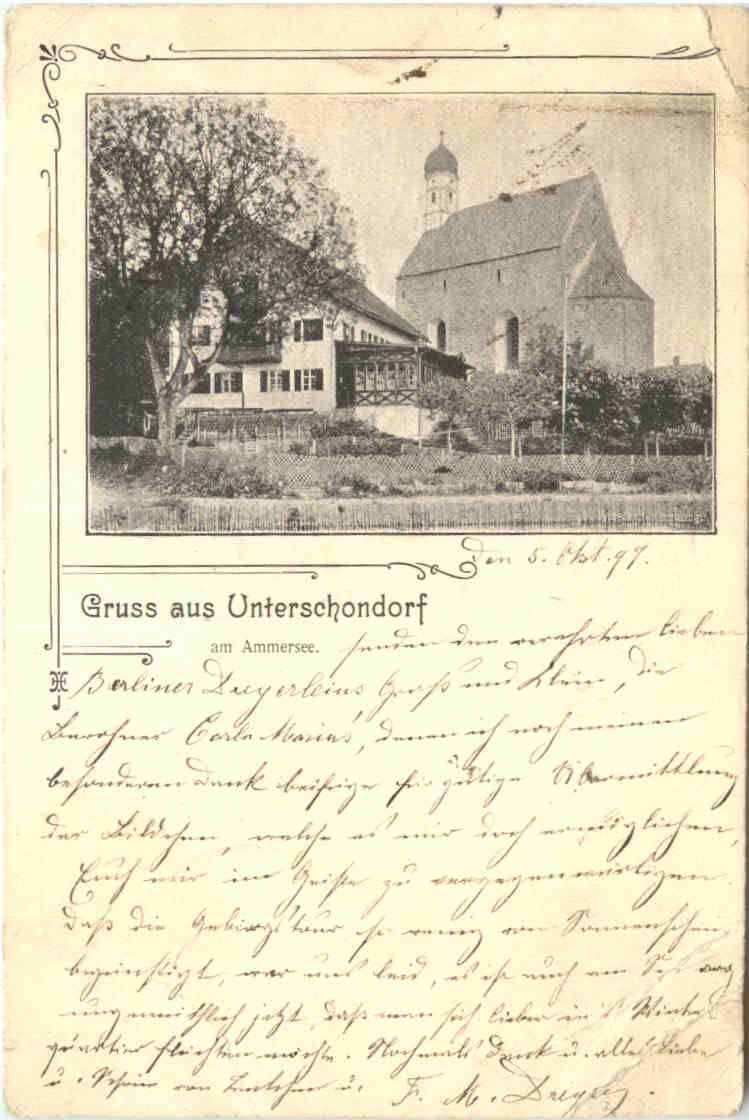 den 5. Okt. 99.
Gruss aus Unterschondorf
am Ammersee.
senden den verehrten lieben
Berliner Dreyerleins, Groß und Klein, die
Bewohner Carla Marias, denen ich noch meinen
besonderen Dank beifüge für gütige Übermittlung
der Bildchen, welche es mir doch ermöglichen,
Euch mir im Geiste zu vergegenwärtigen.
Daß die Gebirgstour so wenig von Sonnenschein
begünstigt, war uns leid, es ist auch am See arg
ungemüthlich jetzt, daß man sich lieber in's Winter
quartier flüchten möchte. Nochmals Dank u. alles Liebe
u. von u. F. M. Dreyer.